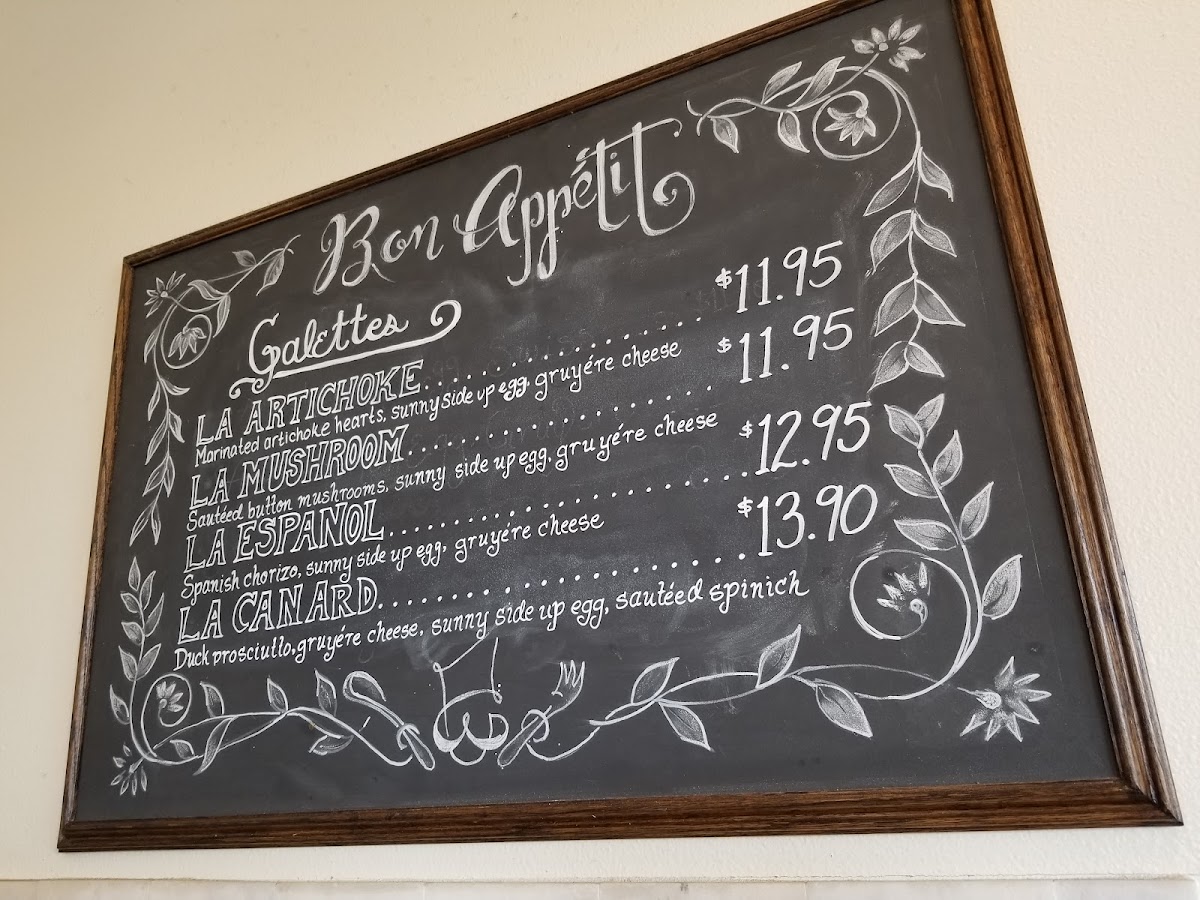 Bon Appétit
Galettes
LA ARTICHOKE.......................$11.95
Marinated artichoke hearts, sunny side up egg, gruyére cheese
LA MUSHROOM.......................$11.95
Sautéed button mushrooms, sunny side up egg, gruyére cheese
LA ESPANOL.......................$12.95
Spanish chorizo, sunny side up egg, gruyére cheese
LA CANARD.......................$13.90
Duck prosciutto, gruyére cheese, sunny side up egg, sautéed spinich